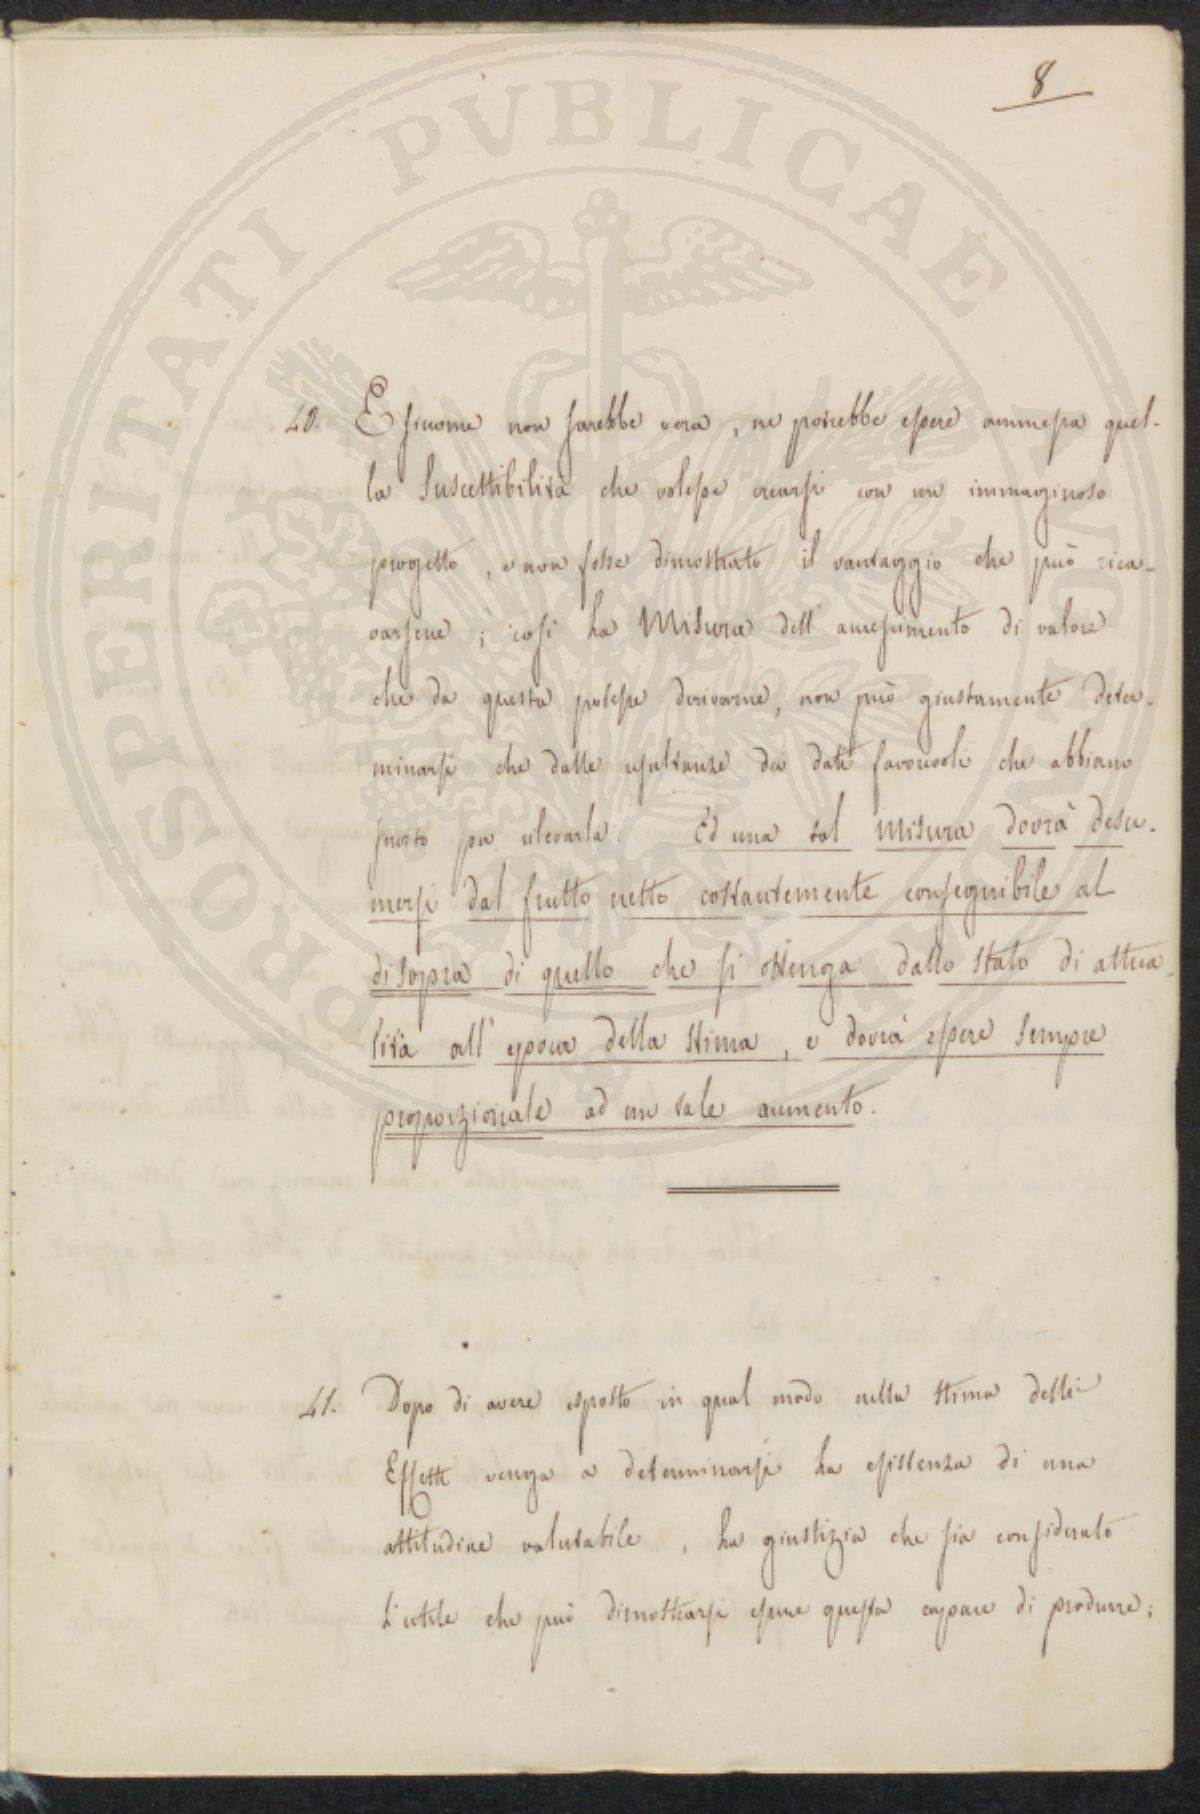 8
40. E siccome non sarebbe vera, ne potrebbe essere ammessa quel-
la Suscettibilità che volesse crearsi con un immaginoso
progetto, e non fosse dimostrato il vantaggio che può rica-
varsene; così la Misura dell' accrescimento di valore
che da questa potesse derivarne, non può giustamente deter-
minarsi che dalle resultanze dei dati favorevoli che abbiano
servito per rilevarla. Ed una tal Misura dovrà desu-
mersi dal frutto netto costantemente conseguibile al
disopra di quello che si ottenga dallo Stato di attua-
lità all' epoca della Stima, e dovrà essere Sempre
proporzionale ad un tale aumento.
41. Dopo di avere esposto in qual modo nella Stima delli
Effetti venga a determinarsi la esistenza di una
attitudine valutabile, la giustizia che sia considerato
L'utile che può dimostrarsi essere questa capace di produrre;
PROSPERITATI PUBLICAE